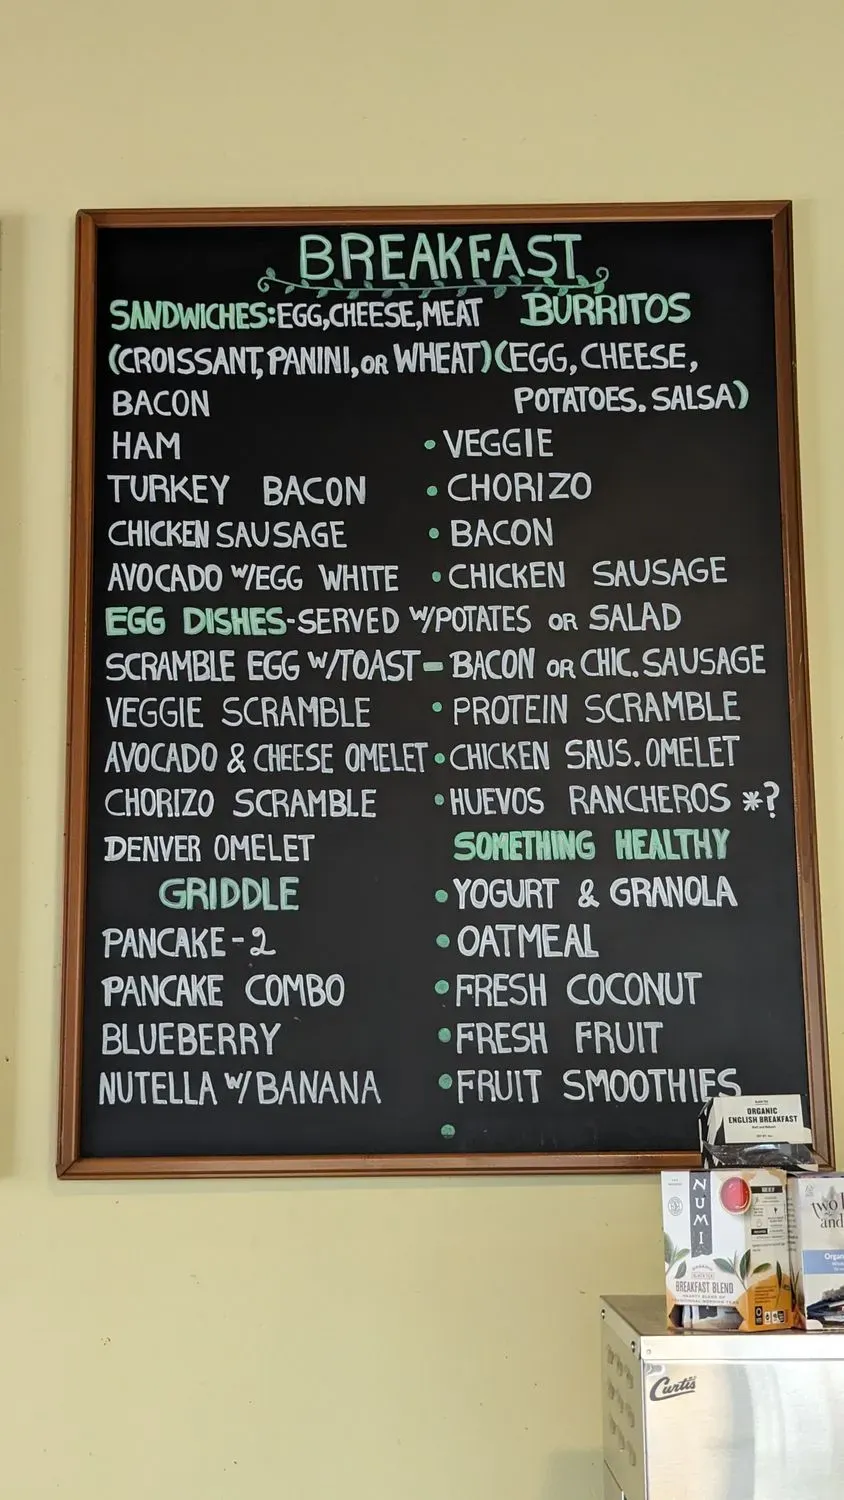 BREAKFAST
SANDWICHES: EGG, CHEESE, MEAT
(CROISSANT, PANINI, OR WHEAT)
BACON
HAM
TURKEY BACON
CHICKEN SAUSAGE
AVOCADO W/EGG WHITE
BURRITOS
(EGG, CHEESE,
POTATOES. SALSA)
• VEGGIE
• CHORIZO
• BACON
• CHICKEN SAUSAGE
EGG DISHES-SERVED W/POTATES OR SALAD
SCRAMBLE EGG W/TOAST - BACON OR CHIC. SAUSAGE
VEGGIE SCRAMBLE
AVOCADO & CHEESE OMELET
CHORIZO SCRAMBLE
DENVER OMELET
• PROTEIN SCRAMBLE
• CHICKEN SAUS. OMELET
• HUEVOS RANCHEROS *?
GRIDDLE
PANCAKE-2
PANCAKE COMBO
BLUEBERRY
NUTELLA W/BANANA
SOMETHING HEALTHY
• YOGURT & GRANOLA
• OATMEAL
• FRESH COCONUT
• FRESH FRUIT
• FRUIT SMOOTHIES
ORGANIC
ENGLISH BREAKFAST
NUMI
ORGANIC
BLACK TEA
BREAKFAST BLEND
two
and
Curtis